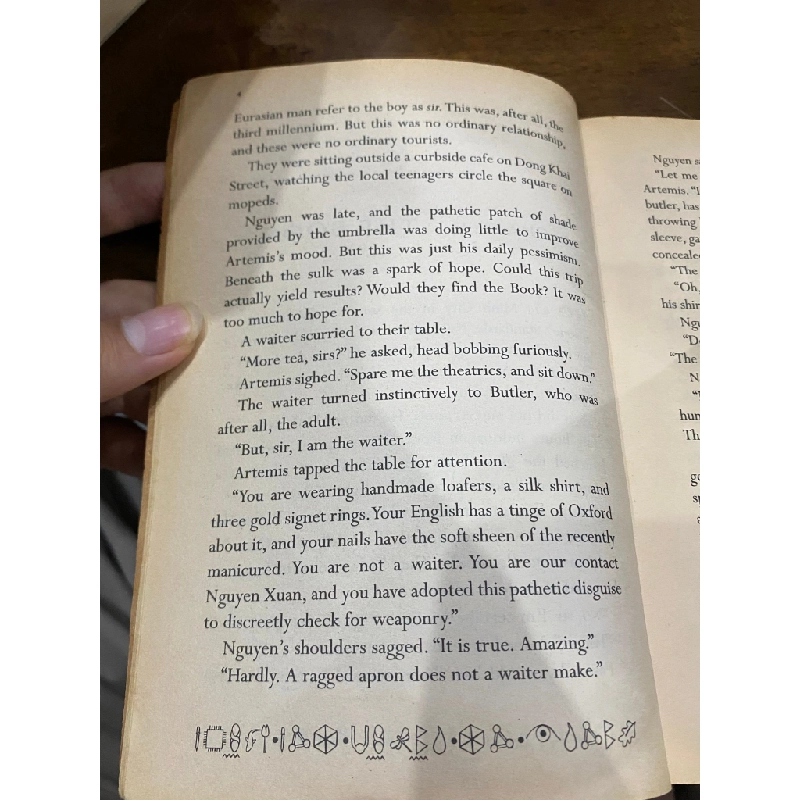 4
Eurasian man refer to the boy as sir. This was, after all, the
third millennium. But this was no ordinary relationship,
and these were no ordinary tourists.
They were sitting outside a curbside cafe on Dong Khai
Street, watching the local teenagers circle the square on
mopeds.
Nguyen was late, and the pathetic patch of shade
provided by the umbrella was doing little to improve
Artemis's mood. But this was just his daily pessimism.
Beneath the sulk was a spark of hope. Could this trip
actually yield results? Would they find the Book? It was
too much to hope for.
A waiter scurried to their table.
“More tea, sirs?” he asked, head bobbing furiously.
Artemis sighed. “Spare me the theatrics, and sit down.”
The waiter turned instinctively to Butler, who was
after all, the adult.
“But, sir, I am the waiter.”
Artemis tapped the table for attention.
“You are wearing handmade loafers, a silk shirt, and
three gold signet rings. Your English has a tinge of Oxford
about it, and your nails have the soft sheen of the recently
manicured. You are not a waiter. You are our contact
Nguyen Xuan, and you have adopted this pathetic disguise
to discreetly check for weaponry.”
Nguyen's shoulders sagged. “It is true. Amazing.”
“Hardly. A ragged apron does not a waiter make.”
Nguyen
“Let me
Artemis.
butler, has
throwing
sleeve,
“The
“Oh,
his
“The